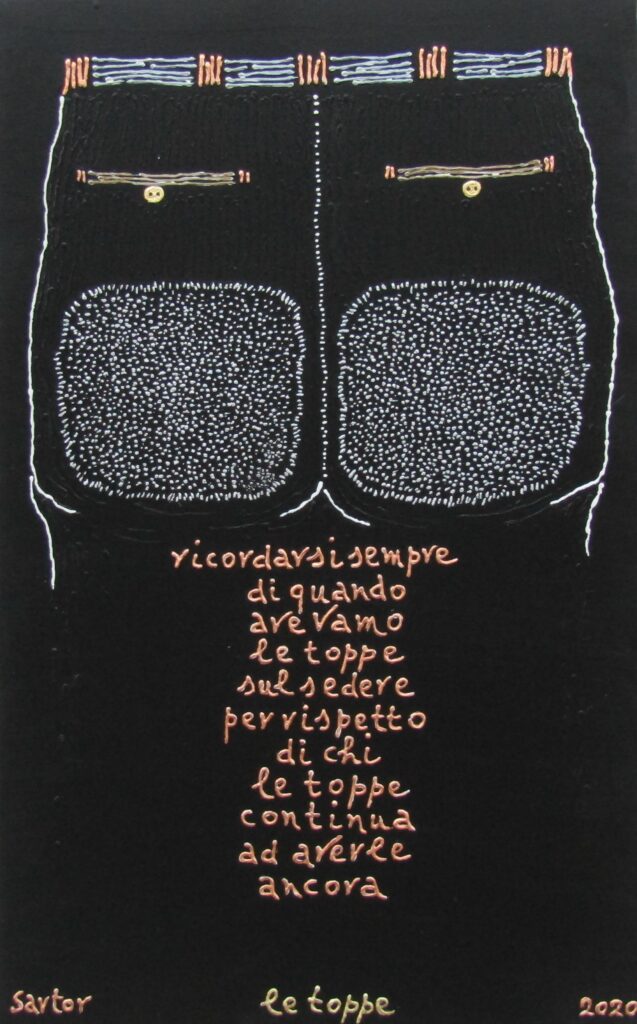 ricordarsi sempre
di quando
avevamo
le toppe
sul sedere
per rispetto
di chi
le toppe
continua
ad averle
ancora
Sartor le toppe 2020